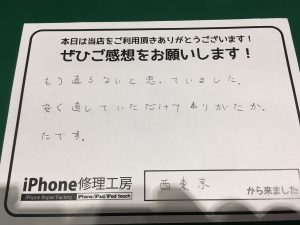 本日は当店をご利用頂きありがとうございます!
ぜひご感想をお願いします!
もう直らないと思っていました。
安く直していただけてありがたか
ったです。
iPhone修理工房
iPhone Repair Factory
iPhone/iPad/iPod touch
西東京
から来ました